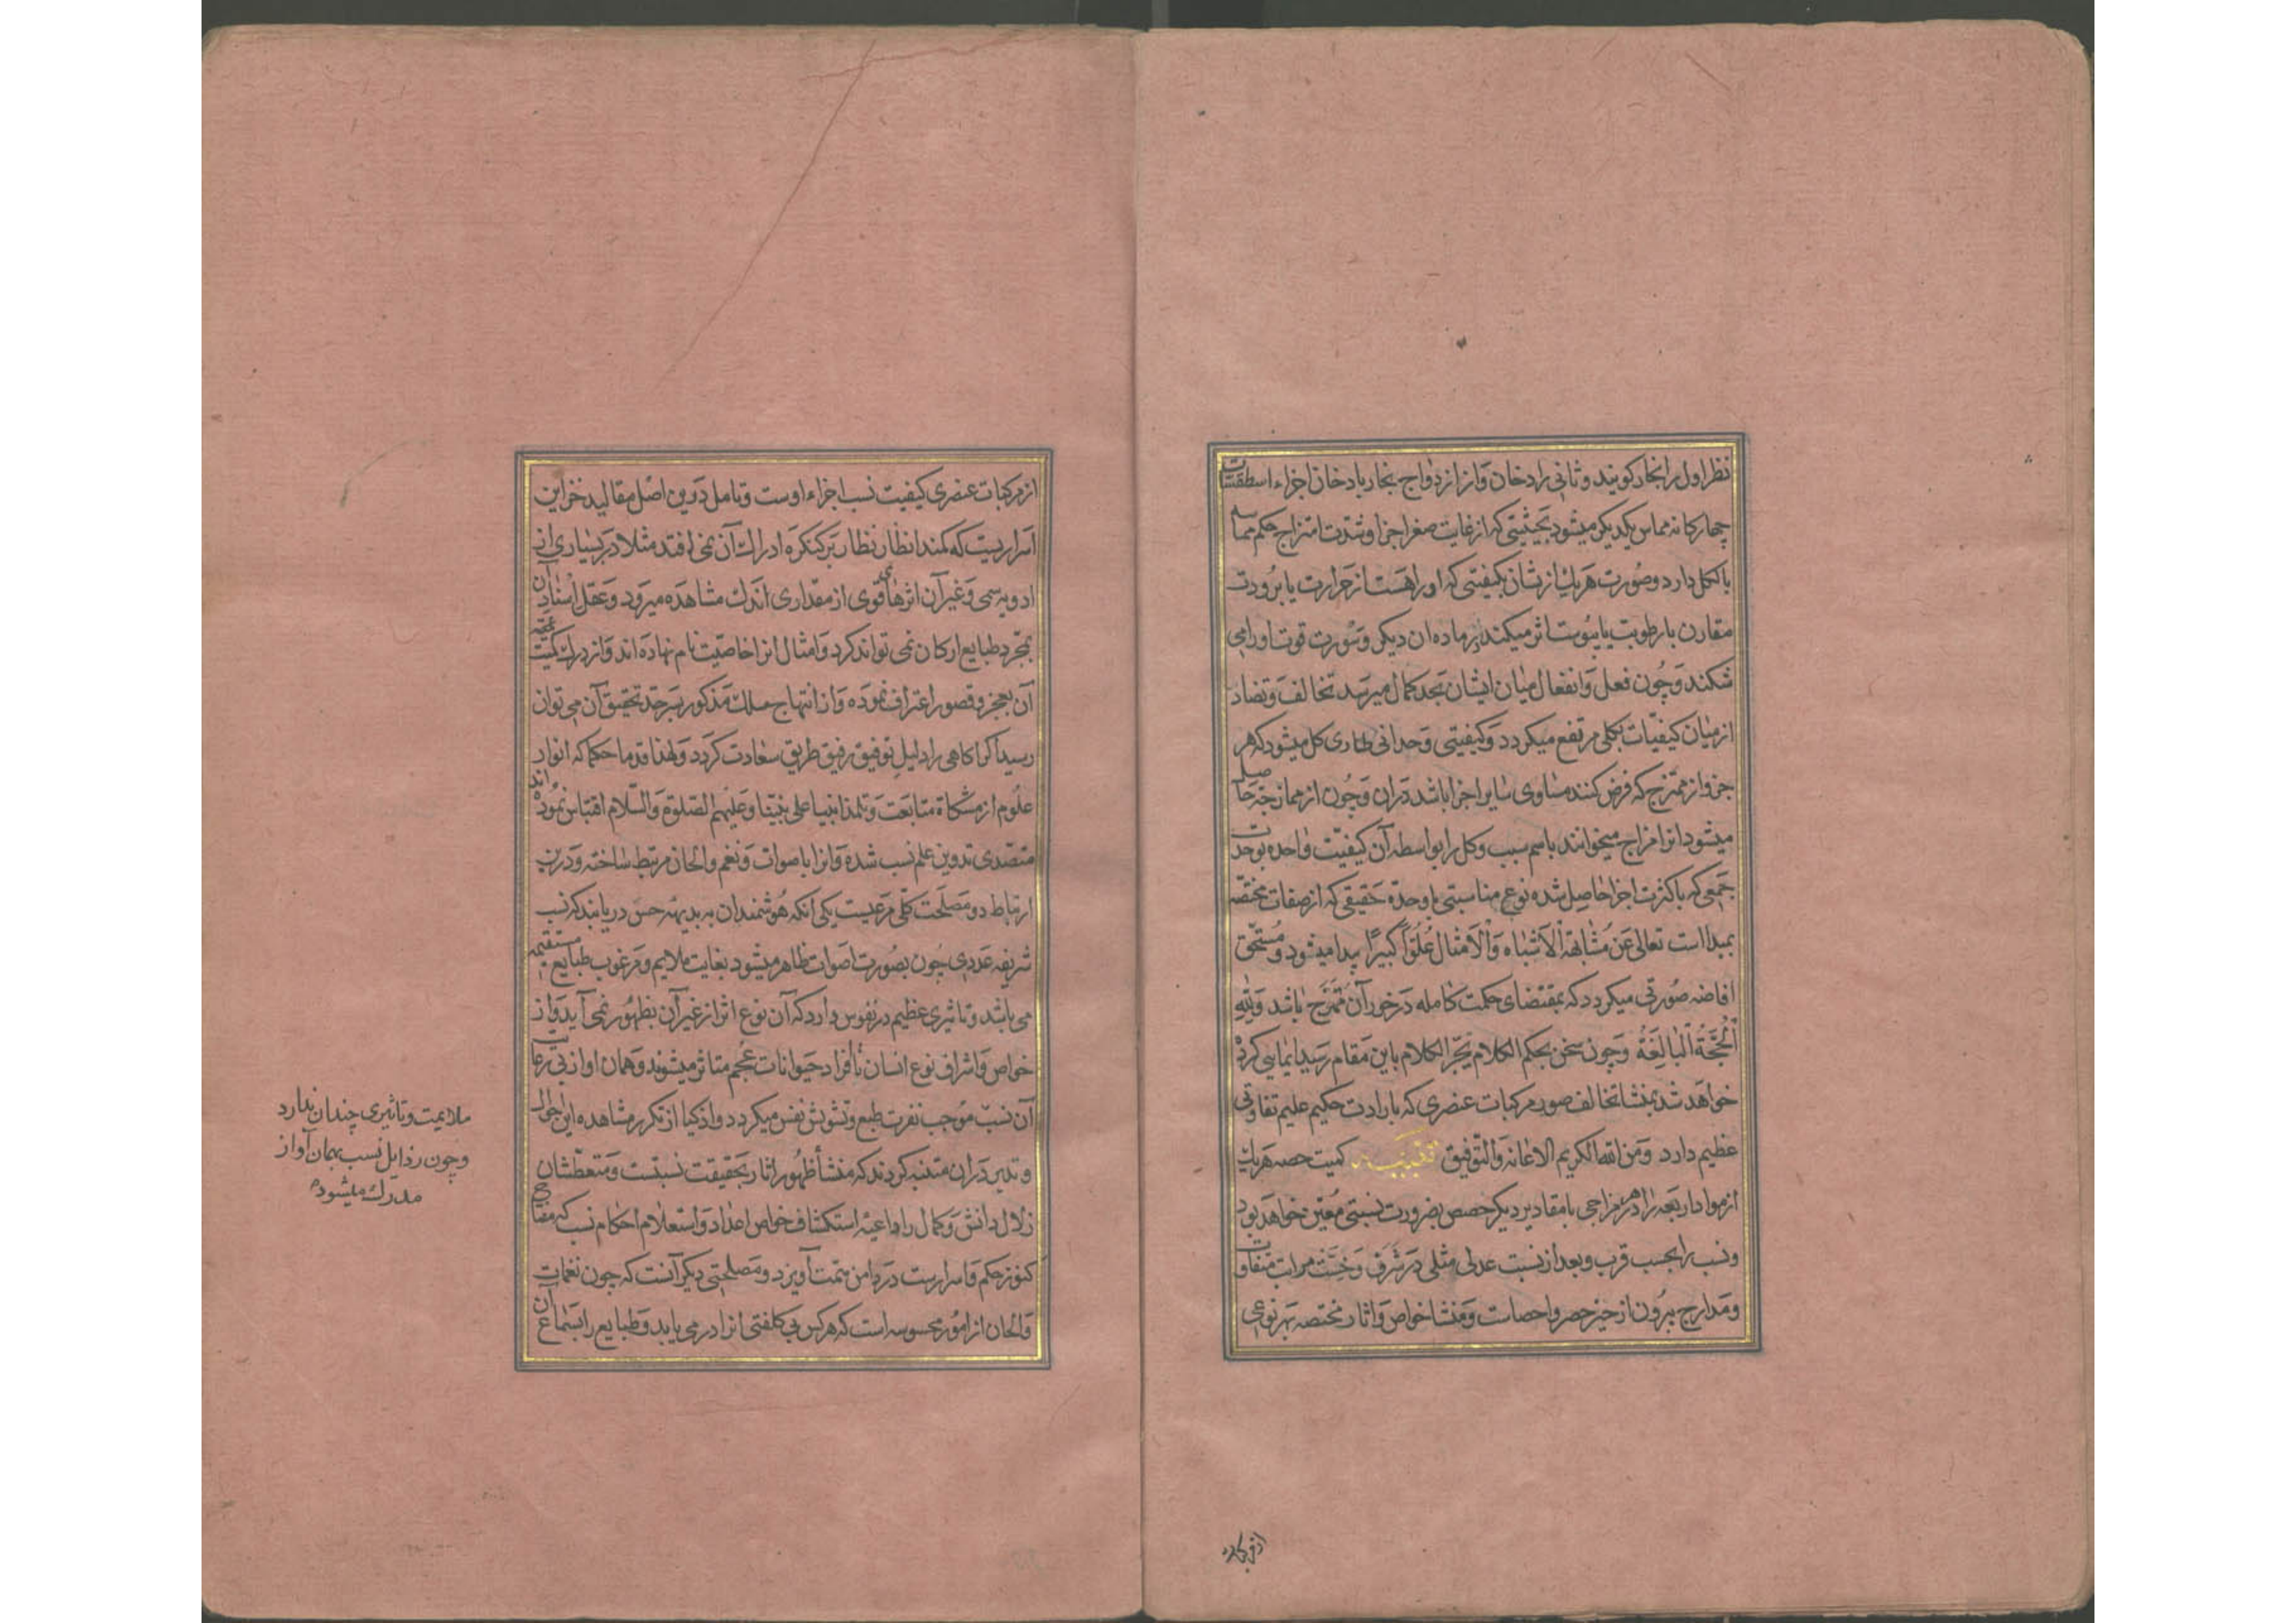 نظر اول را بخار کویند و ثانی را دخان و از ازدواج بخار با دخان اجزاء اسطقسات
چهارکانه مماس یکدیکر میشود بحیثیتی که از غایت صغر اجزا و شدت امتزاج حکم مماسه
بالکل دارد و صورت هر یك ازیشان بکیفیتی که او را هست از حرارت یا برودت
مقارن با رطوبت یا یبوست اثر میکند در ماده ان دیکر و سورت قوت او را می
شکند و چون فعل و انفعال میان ایشان بحد کمال میرسد تخالف و تضاد
از میان کیفیات بکلی مرتفع میکردد و کیفیتی وحدانی طاری کل میشود که هر
جزو از ممتزج که فرض کنند مساوی سایر اجزا باشد دران و چون از ممازجه حاصل
میشود انرا مزاج میخوانند باسم سبب و کل را بواسطه آن کیفیت واحده بوحدت
جمعی که با کثرت اجزا حاصل شده نوع مناسبتی با وحدة حقیقی که از صفات مختصه
بمبدا است تعالی عن مشابهة الاشباه والامثال علوا کبیرا پیدا میشود و مستحق
افاضه صورتی میکردد که بمقتضای حکمت کامله در خور آن ممتزج باشد ولله
الحجة البالغة و چون سخن بحکم الکلام یجر الکلام باین مقام رسید ایمایی کرده
خواهد شد بمنشا تخالف صور مرکبات عنصری که بارادت حکیم علیم تفاوتی
عظیم دارد ومن الله الکریم الاعانة والتوفیق تنبیه کمیت حصه هر یك
از مواد اربعه را در هر مزاجی با مقادیر دیکر حصص بضرورت نسبتی معین خواهد بود
و نسب را بحسب قرب و بعد از نسبت عدلی مثلی در شرف و خست مراتب متفاوت
و مدارج بیرون از حیز حصر و احصاست و منشا خواص و اثار مختصه بهر نوعی
از مرکبات
از مرکبات عنصری کیفیت نسب اجزاء اوست و تامل درین اصل مقالید خزاین
اسراریست که کمند انظار نظار بر کنکره ادراك آن نمی افتد مثلا در بسیاری از
ادویه سمی و غیر آن اثرهای قوی از مقداری اندك مشاهده میرود و عقل اسناد آن
بمجرد طبایع ارکان نمی تواند کرد و امثال انرا خاصیت نام نهاده اند و از درك کمیت
آن بعجز و قصور اعتراف نموده و از انتهاج مسلك مذکور بسرحد تحقیق آن می توان
رسید اکر اکاهی را دلیل توفیق رفیق طریق سعادت کردد و لهذا قدما حکما که انوار
علوم از مشکاة متابعت و تلمذ انبیا علی نبینا وعلیهم الصلوة والسلام اقتباس نموده اند
متصدی تدوین علم نسب شده و انرا باصوات و نغم و الحان مرتبط ساخته و درین
ارتباط دو مصلحت کلی مرعیست یکی انکه هوشمندان به بدیهه حس دریابند که نسب
شریفه عددی چون بصورت اصوات ظاهر میشود بغایت ملایم و مرغوب طبایع مستقیمه
می باشد و تاثیری عظیم در نفوس دارد که آن نوع اثر از غیر آن بظهور نمی آید و از
خواص و اشراف نوع انسان تا افراد حیوانات عجم متاثر میشوند و همان اواز بی رعایت
آن نسب موجب نفرت طبع و تشویش نفس میکردد و اذکیا از تکرر مشاهده این حال
و تدبر دران متنبه کردند که منشأ ظهور اثار بحقیقت نسبتست و متعطشان
زلال دانش و کمال را داعیه استکشاف خواص اعداد و استعلام احکام نسب که مفتاح
کنوز حکم و اسرارست در دامن همت آویزد و مصلحتی دیکر آنست که چون نغمات
و الحان از امور محسوسه است که هر کس بی کلفتی انرا در می یابد و طبایع را بسماع آن
ملایمت و تاثیری چندان ندارد
و چون رذایل نسب بهمان آواز
مدرك میشود